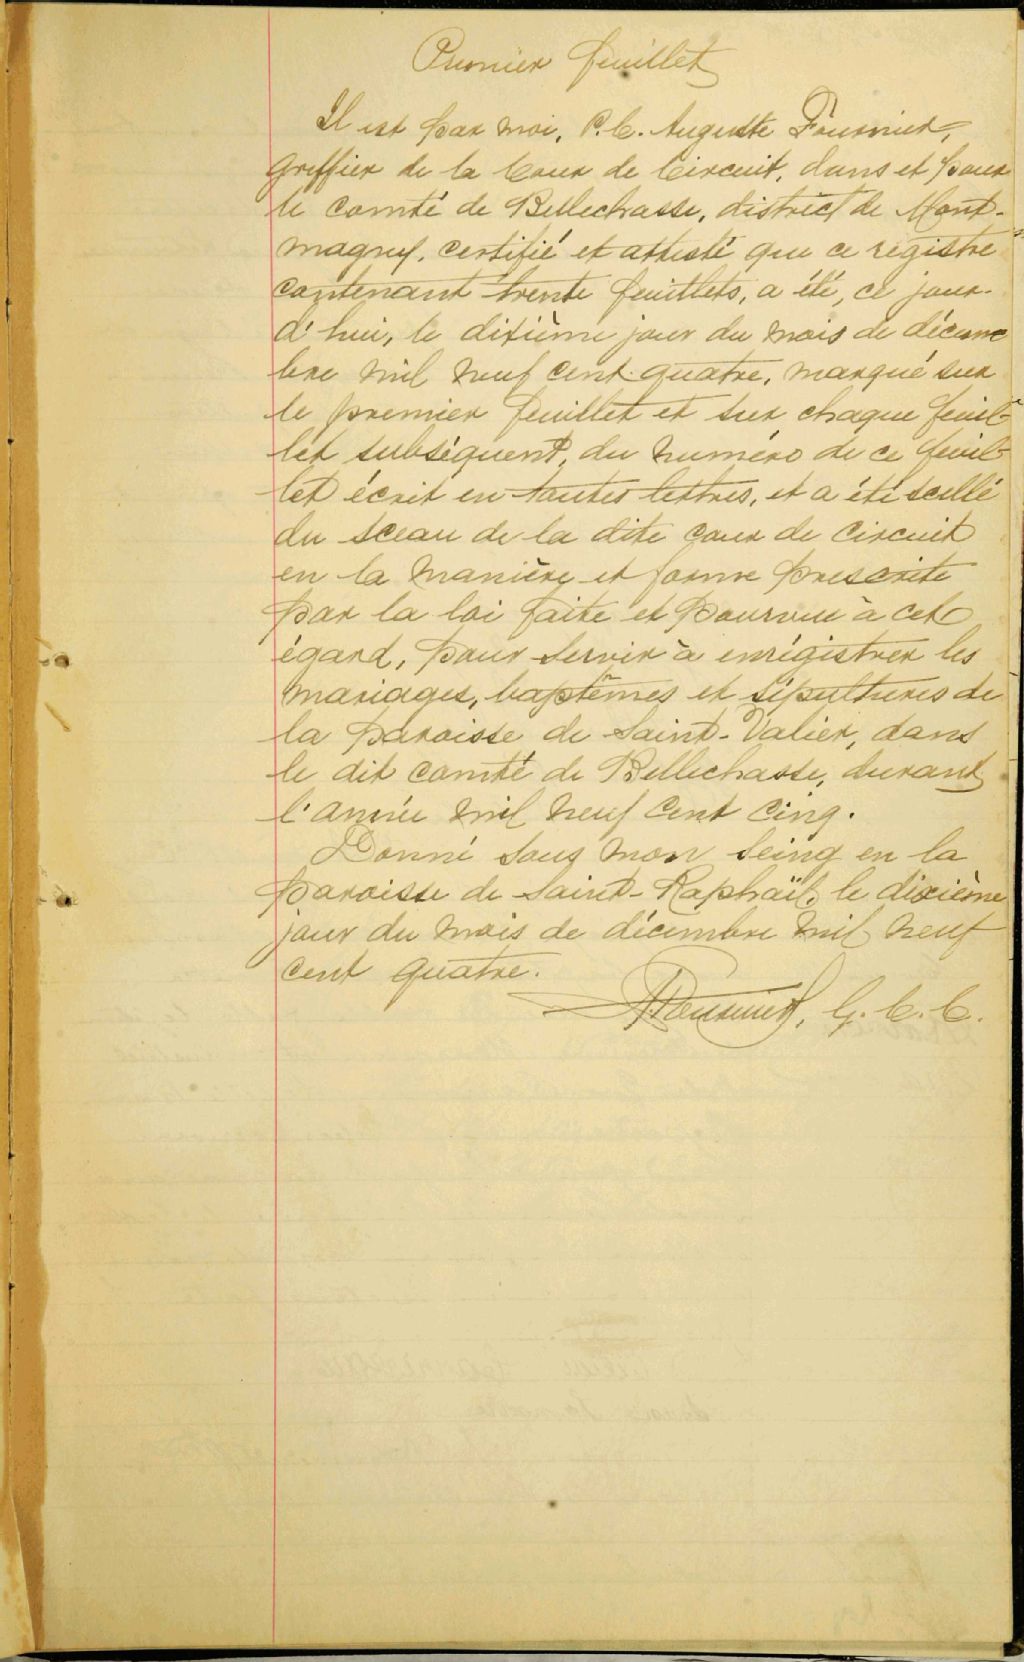 Premier feuillet
Il est par moi, P. C. Auguste Fournier,
Greffier de la Cour de Circuit, dans et pour
le comté de Bellechasse, district de Mont-
magny, certifié et attesté que ce registre
contenant trente feuillets, a été, ce jour-
d'hui, le dixième jour du mois de décem
bre mil neuf cent quatre, marqué sur
le premier feuillet et sur chaque feuil-
let subséquent, du numéro de ce feuil-
let écrit en toutes lettres, et a été scellé
du sceau de la dite cour de Circuit
en la manière et forme prescrite
par la loi faite et pourvue à cet
égard, pour servir à enrégistrer les
mariages, baptêmes et sépultures de
la paroisse de Saint-Valier, dans
le dit comté de Bellechasse, durant
l'année mil neuf cent cinq.
Donné sous mon seing en la
paroisse de Saint-Raphaël, le dixième
jour du mois de décembre mil neuf
cent quatre.
Fournier, G. C. C.